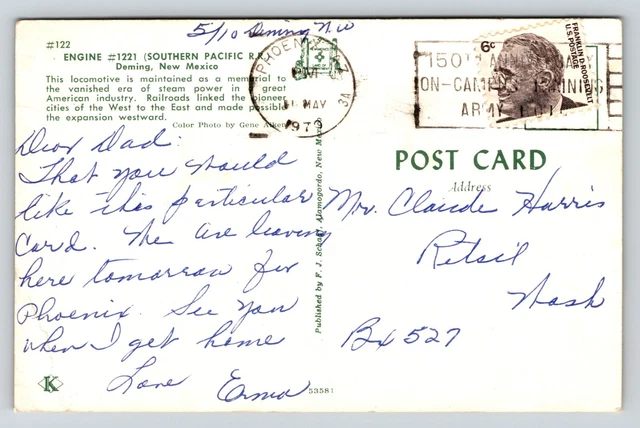 5/10 Deming N.M
#122
ENGINE #1221 (SOUTHERN PACIFIC R.
Deming, New Mexico
This locomotive is maintained as a memorial to
the vanished era of steam power in great
American industry. Railroads linked the pioneer
cities of the West to the East and made possible
the expansion westward.
Color Photo by Gene Aiken
PHOENIX
PM
11 MAY
197
3A
150TH ANNIVERSARY
ON-CAMPUS TRAINING
ARMY
6¢
FRANKLIN D. ROOSEVELT
U.S. POSTAGE
Dear Dad:
That you would
like this particular
Card. We are leaving
here tomorrow for
Phoenix. See you
when I get home
Love Erma
Published by F. J. Schaaf, Alamogordo, New Mexico
POST CARD
Address
Mr. Claude Harris
Retsil
Wash
Bx 527
K
53581